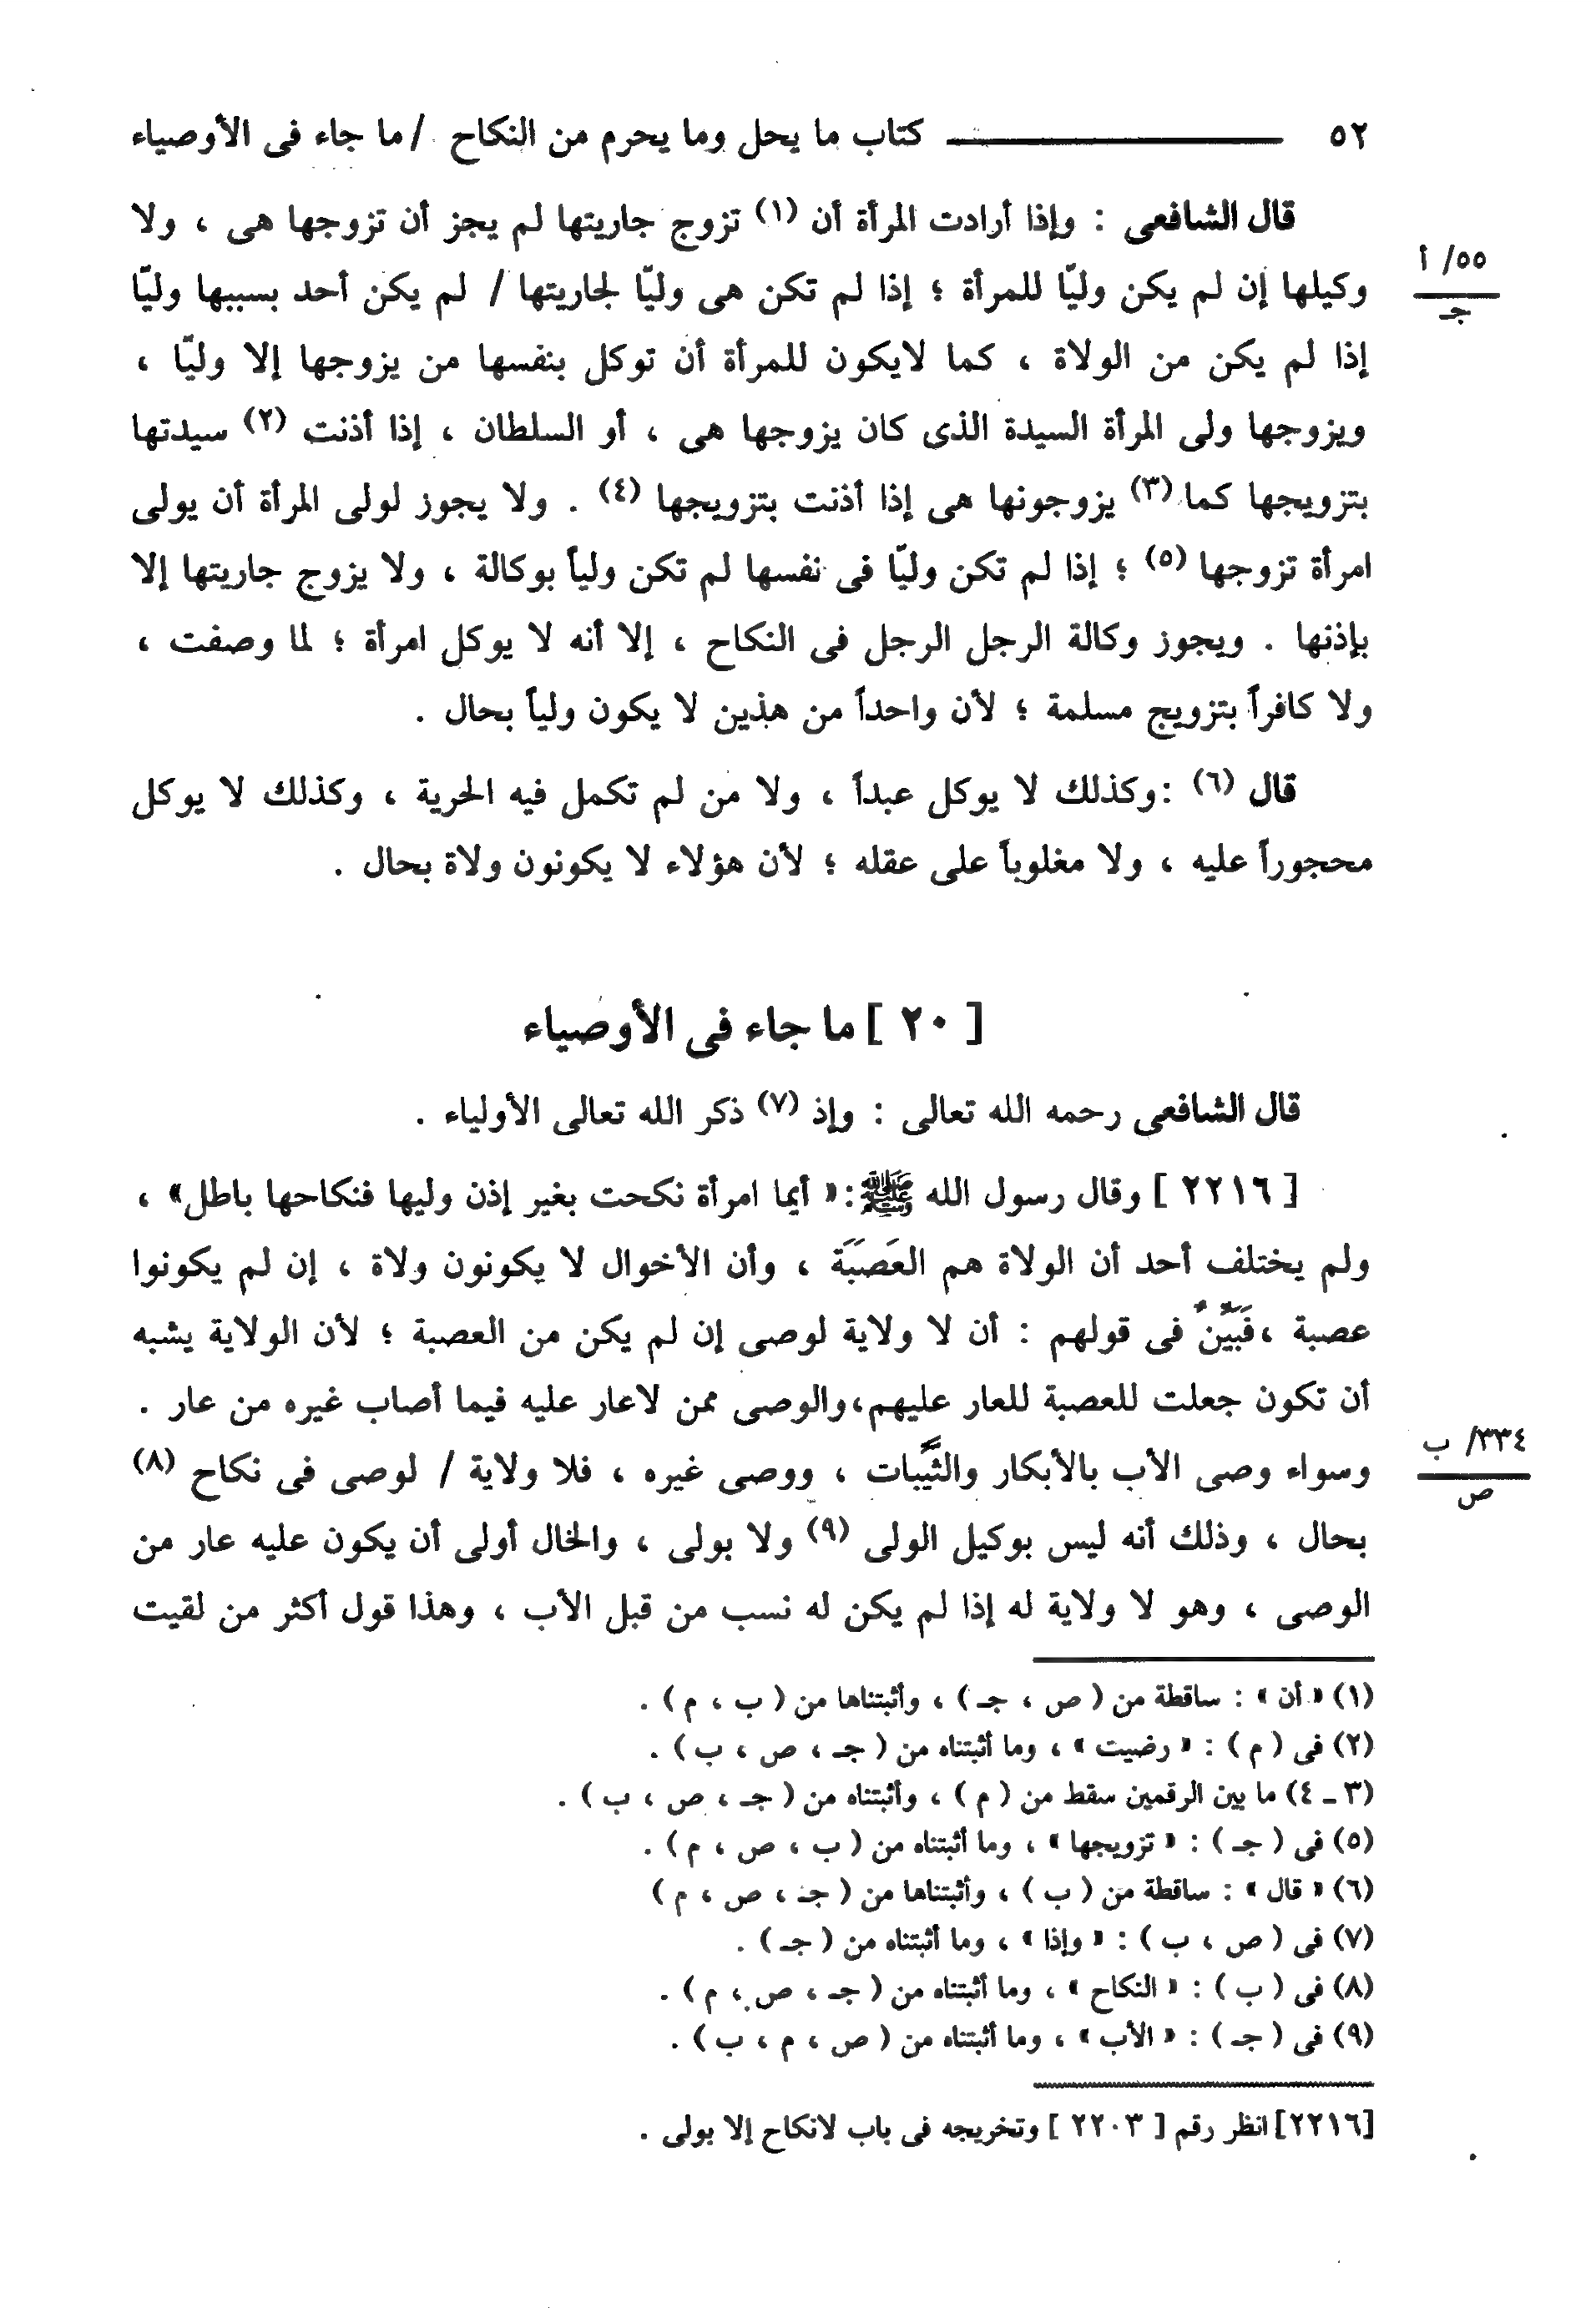 ٥٢ كتاب ما يحل وما يحرم من النكاح / ما جاء فى الأوصياء
قال الشافعى : وإذا أرادت المرأة أن (١) تزوج جاريتها لم يجز أن تزوجها هى ، ولا
وكيلها إن لم يكن وليّا للمرأة ؛ إذا لم تكن هى وليّا لجاريتها / لم يكن أحد بسببها وليّا
٥٥/ أ
جـ
إذا لم يكن من الولاة ، كما لايكون للمرأة أن توكل بنفسها من يزوجها إلا وليّا ،
ويزوجها ولى المرأة السيدة الذى كان يزوجها هى ، أو السلطان ، إذا أذنت (٢) سيدتها
بتزويجها كما (٣) يزوجونها هى إذا أذنت بتزويجها (٤) . ولا يجوز لولى المرأة أن يولى
امرأة تزوجها (٥) ؛ إذا لم تكن وليّا فى نفسها لم تكن ولياً بوكالة ، ولا يزوج جاريتها إلا
بإذنها . ويجوز وكالة الرجل الرجل فى النكاح ، إلا أنه لا يوكل امرأة ؛ لما وصفت ،
ولا كافراً بتزويج مسلمة ؛ لأن واحداً من هذين لا يكون ولياً بحال .
قال (٦) :وكذلك لا يوكل عبداً ، ولا من لم تكمل فيه الحرية ، وكذلك لا يوكل
محجوراً عليه ، ولا مغلوباً على عقله ؛ لأن هؤلاء لا يكونون ولاة بحال .
[ ٢٠ ] ما جاء فى الأوصياء
قال الشافعى رحمه الله تعالى : وإذ (٧) ذكر الله تعالى الأولياء .
[ ٢٢١٦ ] وقال رسول الله ﷺ:« أيما امرأة نكحت بغير إذن وليها فنكاحها باطل» ،
ولم يختلف أحد أن الولاة هم العَصَبَة ، وأن الأخوال لا يكونون ولاة ، إن لم يكونوا
عصبة ،فَبَيِّنٌ فى قولهم : أن لا ولاية لوصى إن لم يكن من العصبة ؛ لأن الولاية يشبه
أن تكون جعلت للعصبة للعار عليهم،والوصى ممن لاعار عليه فيما أصاب غيره من عار .
وسواء وصى الأب بالأبكار والثَّيِّبات ، ووصى غيره ، فلا ولاية / لوصى فى نكاح (٨)
٣٣٤/ ب
ص
بحال ، وذلك أنه ليس بوكيل الولى (٩) ولا بولى ، والخال أولى أن يكون عليه عار من
الوصى ، وهو لا ولاية له إذا لم يكن له نسب من قبل الأب ، وهذا قول أكثر من لقيت
(١) « أن » : ساقطة من ( ص ، جـ ) ، وأثبتناها من ( ب ، م ) .
(٢) فى ( م ) : « رضيت » ، وما أثبتناه من ( جـ ، ص ، ب ) .
(٣ ـ ٤) ما بين الرقمين سقط من ( م ) ، وأثبتناه من ( جـ ، ص ، ب ) .
(٥) فى ( جـ ) : « تزويجها » ، وما أثبتناه من ( ب ، ص ، م ) .
(٦) « قال » : ساقطة من ( ب ) ، وأثبتناها من ( جـ ، ص ، م )
(٧) فى ( ص ، ب ) : « وإذا » ، وما أثبتناه من ( جـ ) .
(٨) فى ( ب ) : « النكاح » ، وما أثبتناه من ( جـ ، ص ، م ) .
(٩) فى ( جـ ) : « الأب » ، وما أثبتناه من ( ص ، م ، ب ) .
[٢٢١٦] انظر رقم [ ٢٢٠٣ ] وتخريجه فى باب لانكاح إلا بولى .